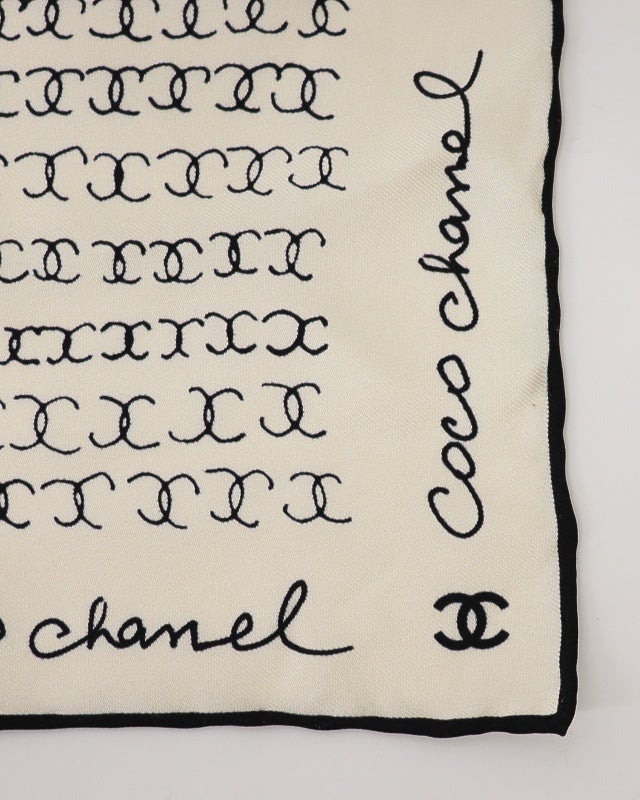 coco chanel
chanel